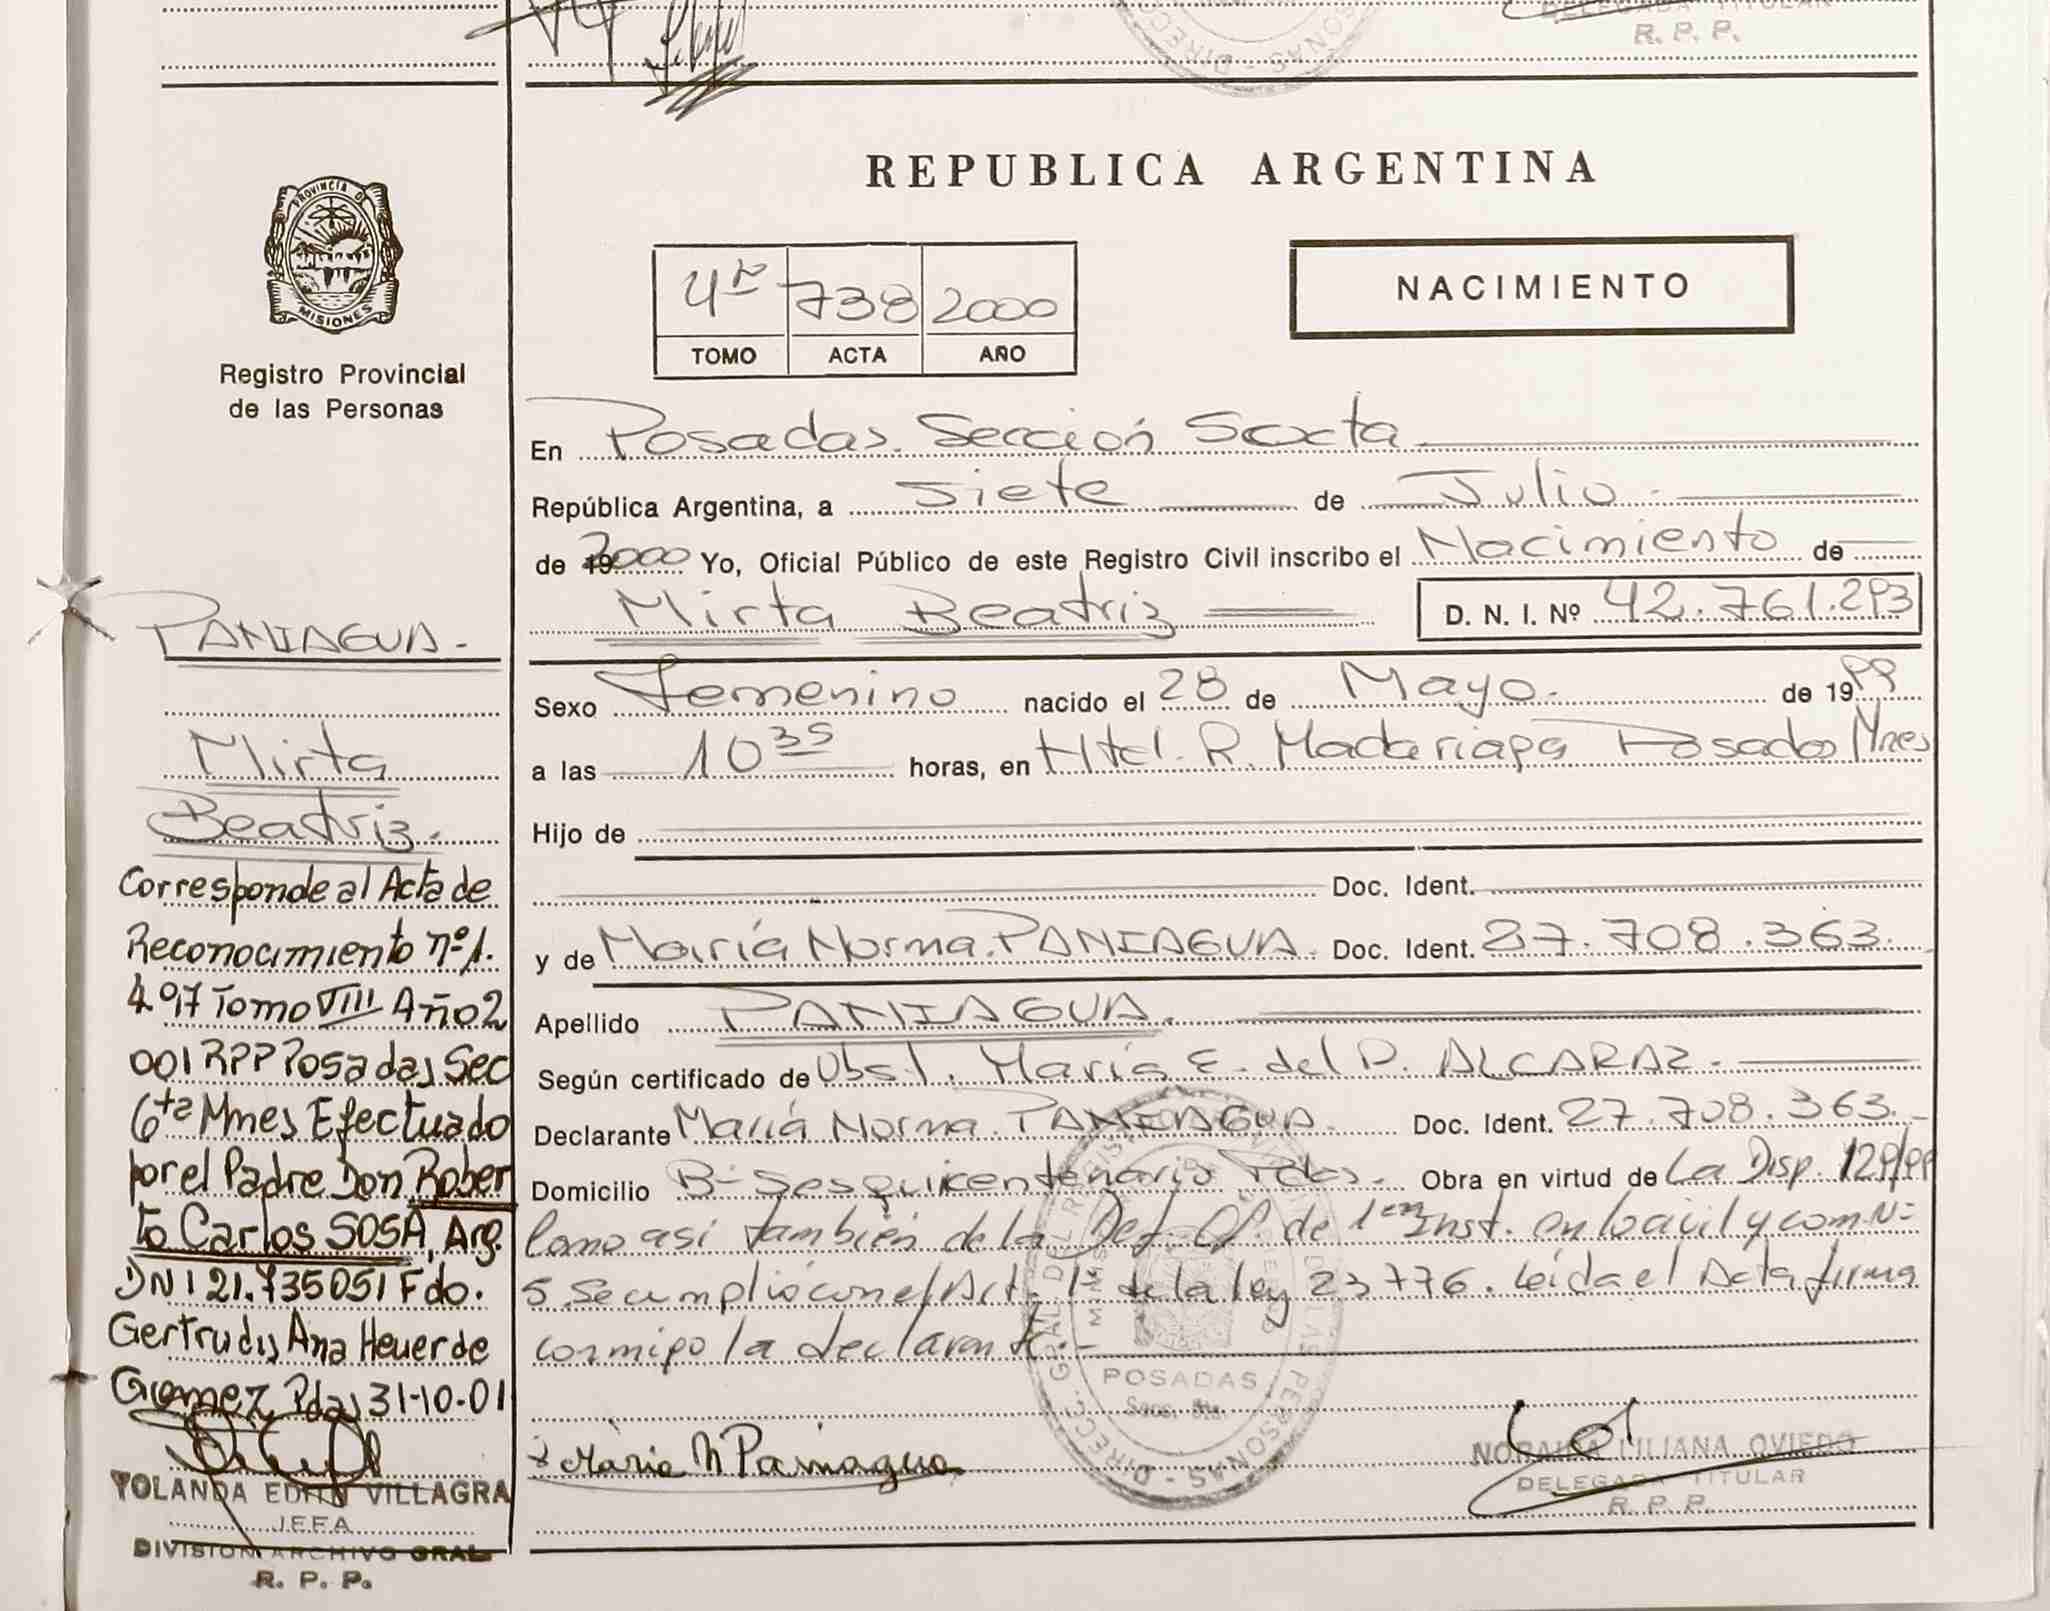 DELEGADA TITULAR
R. P. P.
REPUBLICA ARGENTINA
PROVINCIA DE
MISIONES
Registro Provincial
de las Personas
4to 738 2000
TOMO ACTA AÑO
NACIMIENTO
En Posadas. Sección Sexta
República Argentina, a siete de Julio
de 2000 Yo, Oficial Público de este Registro Civil inscribo el Nacimiento de
Mirta Beatriz D. N. I. Nº 42.761.293
Sexo Femenino nacido el 28 de Mayo. de 1999
a las 10 35 horas, en Htal. R. Madariaga Posadas Mnes
Hijo de
Doc. Ident.
y de María Norma. PANIAGUA. Doc. Ident. 27.708.363.
Apellido PANIAGUA.
Según certificado de Obst. María E. del P. ALCARAZ.
Declarante María Norma. PANIAGUA. Doc. Ident. 27.708.363.
Domicilio Bº Sesquicentenario Pdas. Obra en virtud de La Disp. 129/99
Como así también de la Def. Of. de 1era Inst. en lo civil y com Nº
5. Se cumplió con el Art. 1º de la ley 23776. Leída el Acta firma
conmigo la declarante.-
PANIAGUA.
Mirta
Beatriz.
Corresponde al Acta de
Reconocimiento nº 1.
497 Tomo VIII Año 2
001 RPP Posadas Sec
6ta Mnes Efectuado
por el Padre Don Rober
to Carlos SOSA, Arg.
DNI 21.735051 Fdo.
Gertrudis Ana Heuer de
Gomez Pdas 31-10-01
YOLANDA EDITH VILLAGRA
JEFA
DIVISION ARCHIVO GRAL
R. P. P.
Maria N Painagua
POSADAS
Secc. 6ta.
NORAIDA LILIANA OVIEDO
DELEGADA TITULAR
R. P. P.